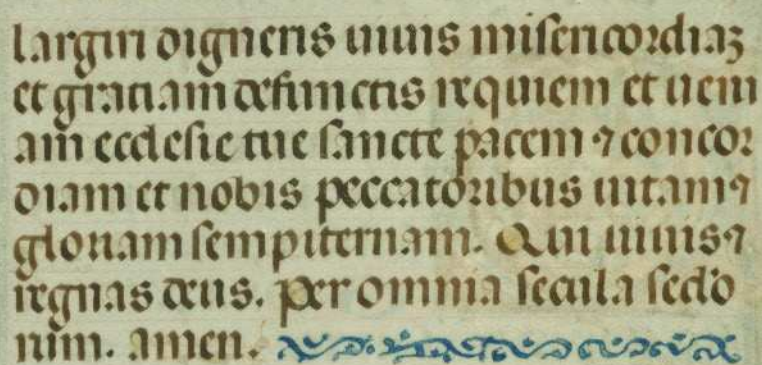 largiri digneris uiuis misericordiaʒ
et gratiam defunctis requiem et ueni
am ecclesie tue sancte pacem ⁊ concor
diam et nobis peccatoribus uitam ⁊
gloriam sempiternam. Qui uiuis ⁊
regnas deus. Per omnia secula seclo
rum. amen.